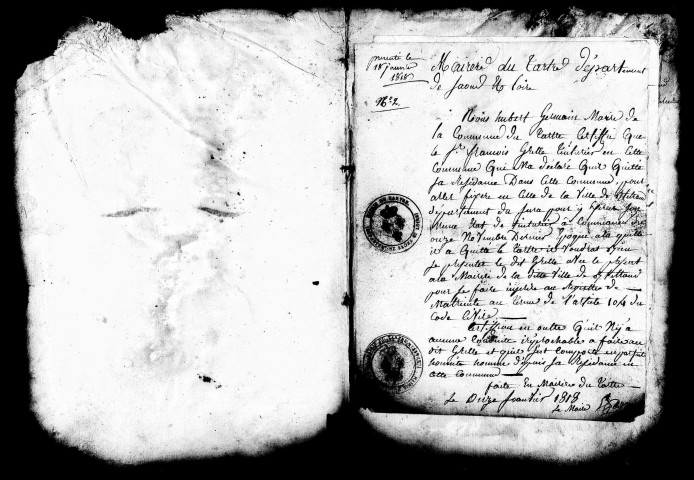 presenté le
18 janvier
1818
N° 2
Mairerie du Tartre Département
de Saone et loire
Nous hubert Germain Maire de
la Commune du Tartre Certiffie que
le Sr francois Grille teinturier en Cette
Commune Qui Ma déclaré Quil Quitte
sa Résidance Dans Cette Commune, pour
aller fixére en Celle de la Ville de
département du Jura pour y Exercer
Meme Etat de tinturier à Commencer du
onze Novembre Dernier Epoque ala quelle
il a Quitté le Tartre
se présenter le dit Grille avec le présent
ala Mairie de la ditte Ville de
pour se faire inscrire au Registre de
Matricule au terme de l'article 104 du
Code Civile.
Certiffion en outre Quil N'y a
aucune Conduite iréprochable a faire au
dit Grille et quil sest comporté en parfait
honnete homme depuis sa Residance en
Cette Commune
faite En Mairie du Tartre
Le Onze Janvier 1818
Le Maire